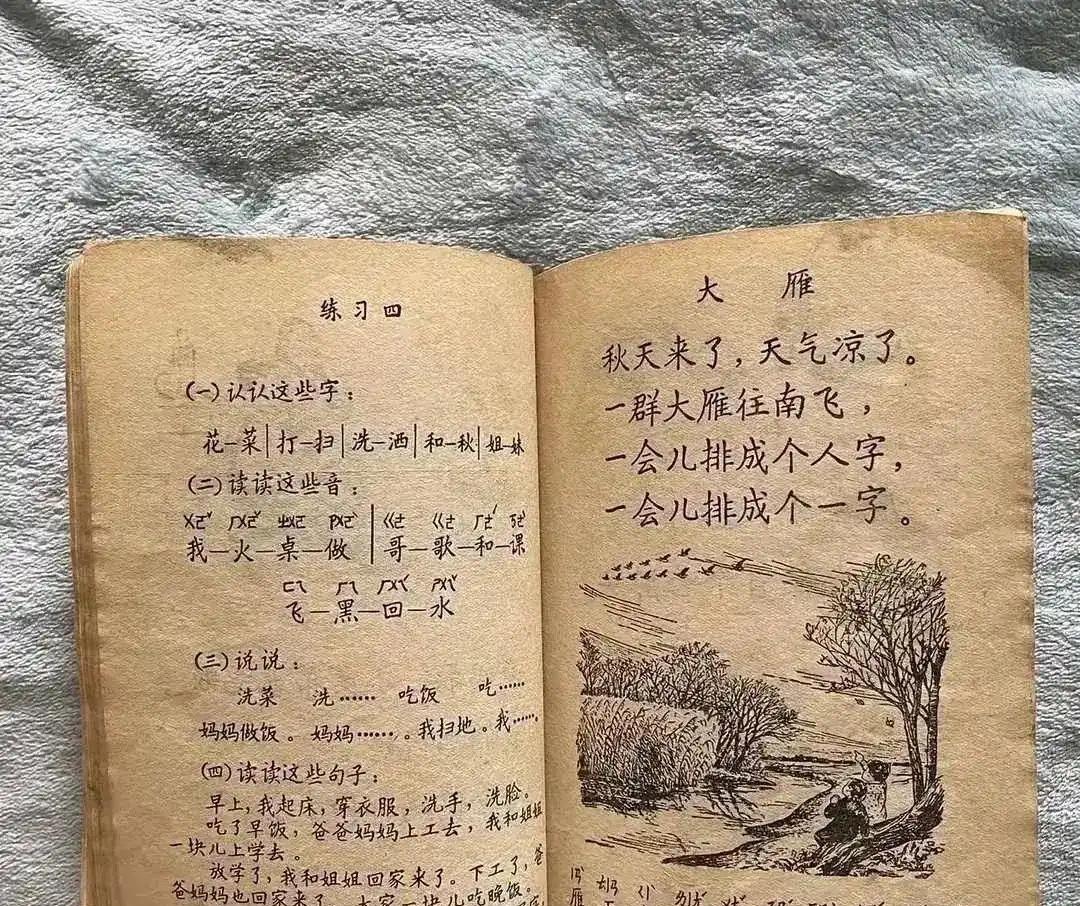 练习四
(一)认认这些字：
花—菜|打—扫|洗—洒|和—秋|姐—妹
(二)读读这些音：
ㄨㄛˇ ㄏㄨㄛˇ ㄓㄨㄛ ㄗㄨㄛˋ|ㄍㄜ ㄍㄜ ㄏㄜˊ ㄎㄜˋ
我—火—桌—做|哥—歌—和—课
ㄈㄟ ㄏㄟ ㄏㄨㄟˊ ㄕㄨㄟˇ
飞—黑—回—水
(三)说说：
洗菜 洗…… 吃饭 吃……
妈妈做饭。妈妈……。我扫地。我……。
(四)读读这些句子：
早上，我起床，穿衣服，洗手，洗脸。
吃了早饭，爸爸妈妈上工去，我和姐姐
一块儿上学去。
放学了，我和姐姐回家来了。下工了，爸
爸妈妈也回家来了。大家一块儿吃晚饭。
大 雁
秋天来了，天气凉了。
一群大雁往南飞，
一会儿排成个人字，
一会儿排成个一字。
雁